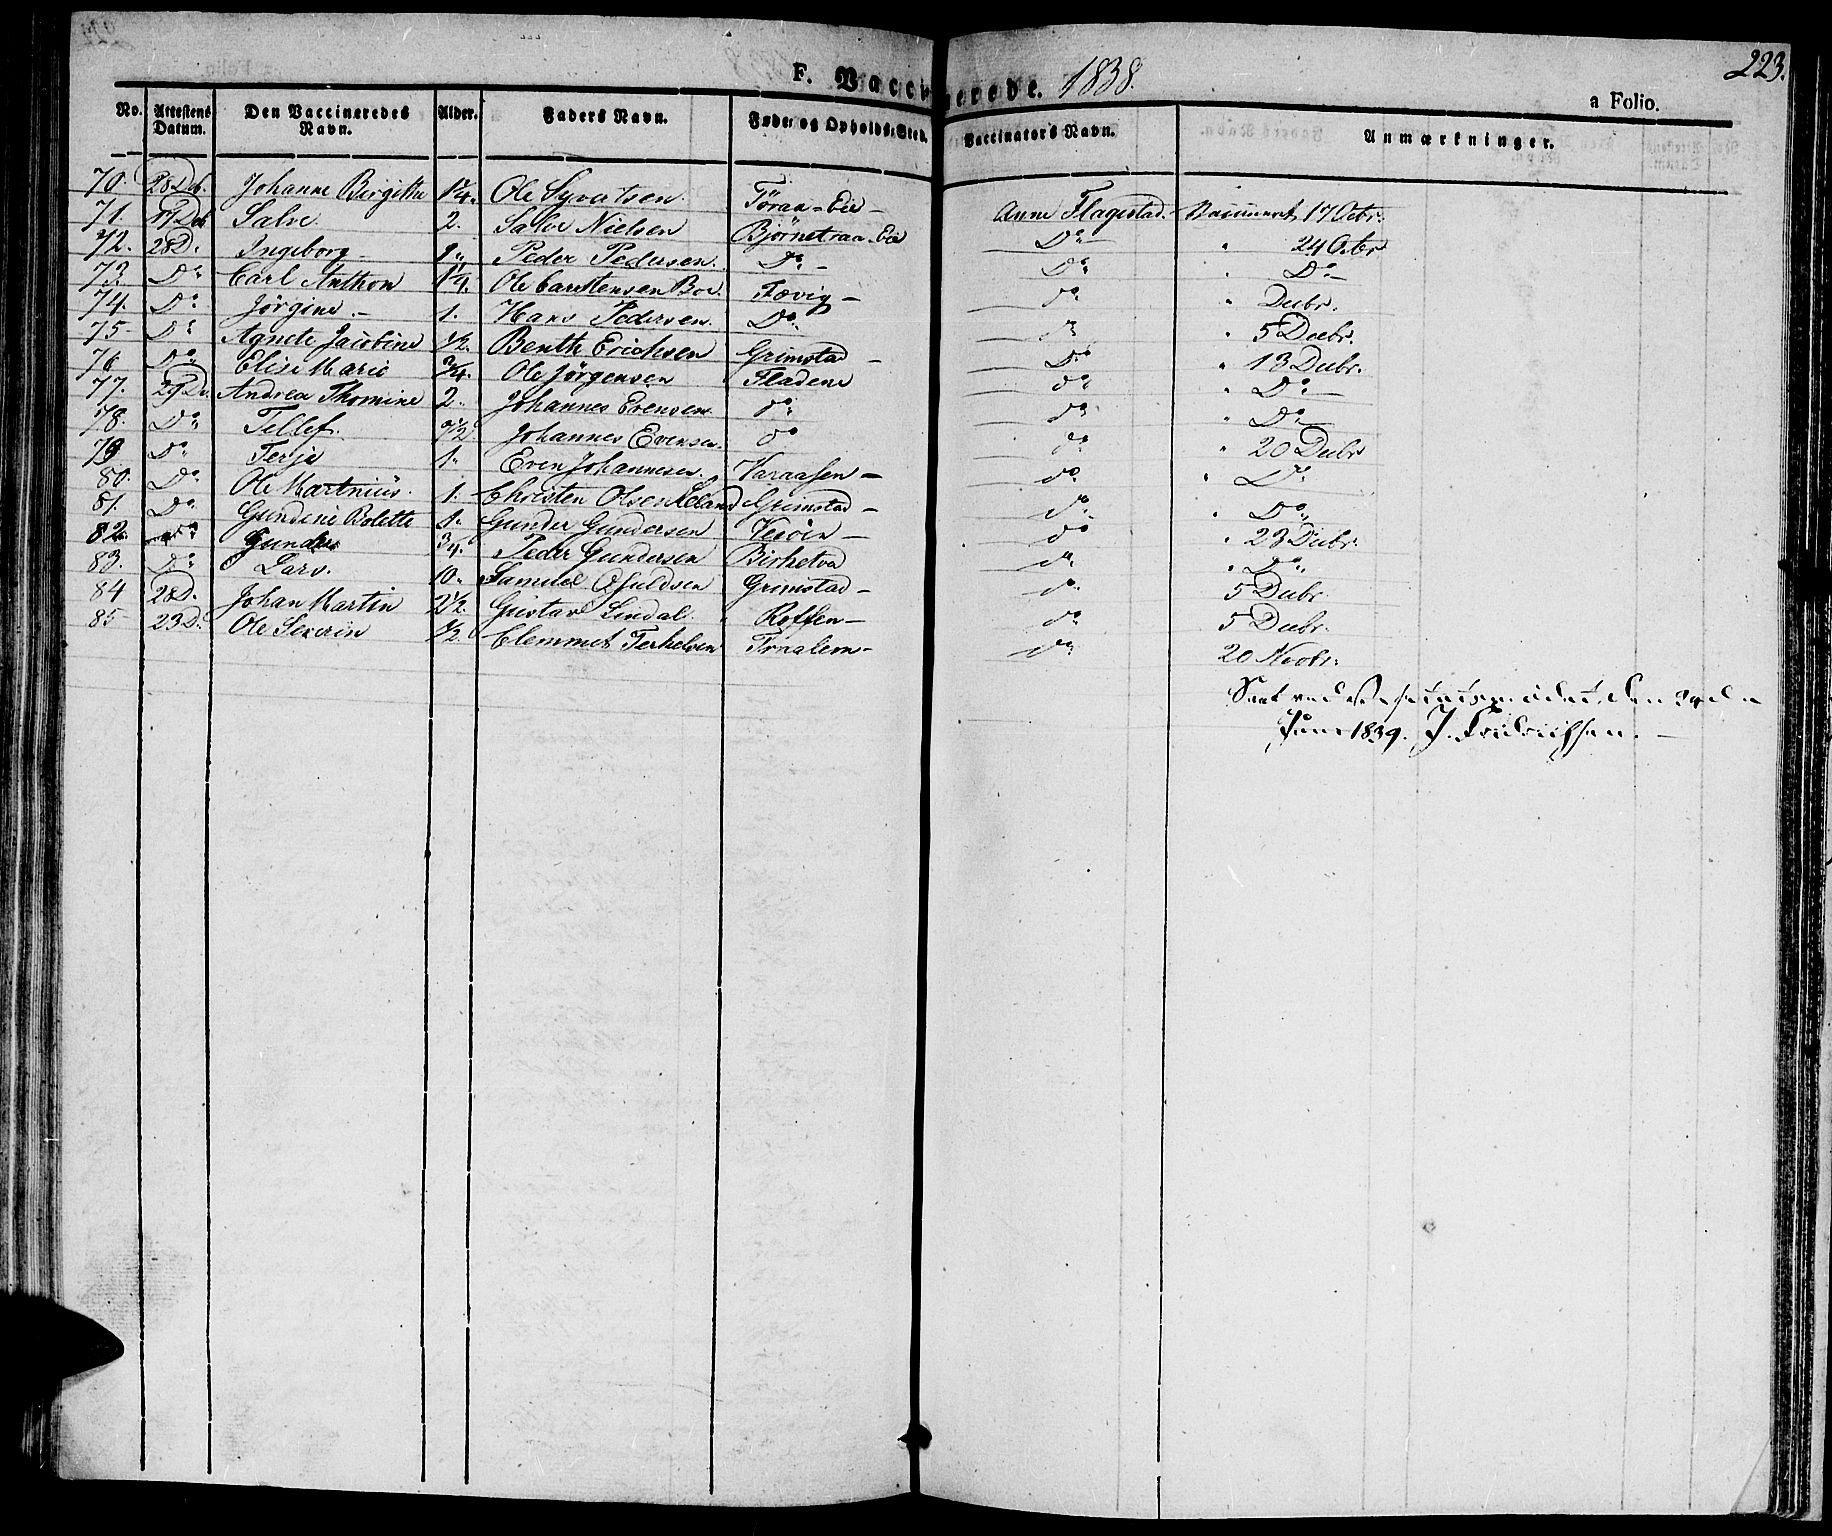 223.
F. Vaccinerede. 1838.
a Folio.
No. Attestens Datum. Den Vaccineredes Navn. Alder. Faders Navn. Føde- og Opholds-Sted. Vaccinators Navn. Anmærkninger.
70. 28 Dcb. Johanne Birgitte 1 1/4. Ole Syvertsen. Töraa-Eie - Anne Flagestad. Vaccineret 17 Octbr.
71. Dcb Salve 2. Salve Nielsen Bjørnetraa-Eie Do - " 24 Octbr
72. 28 D. Ingeborg - Peder Pedersen. Do - Do " Do -
73. Do Carl Anthon 1 1/4. Ole Carstensen Boe. Fævig - do " Decbr.
74. Do Jörgine. - 1. Hans Pedersen. Do. do " 5 Decbr.
75 - Do Agnete Jacobine 1/2. Benth Erichsen Grimstad - Do " 13 Decbr.
76 Do Elise Marie 3/4. Ole Jörgensen Fladene do " Do -
77. 29 D. Andrea Thomine 2. Johannes Evensen do do " Do -
78. Do Tellef. 1/2 Johannes Evensen. do do " 20 Decbr
79 Do Terje 1. Even Johannesen. Varaasen - do " Do -
80. Do Ole Martinius. 1. Christen Olsen Leland Grimstad - do Do
81. Do Gundene Bolette 1. Gunder Gundersen Vesöen - do " 23 Decbr.
82. Do Gunder 3/4. Peder Gundersen Birketvedt do " Do
83. Do Lars. 10. Samuel Osuldsen Grimstad - do 5 Decbr.
84 28 D. Johan Martin 2 1/2. Gustav Lindal. Roffen - do 5 Decbr.
85 - 23 D. Ole Severin 1/2. Clemmet Terkelsen Traalem - do 20 Novbr.
Seet ved den
Juni 1839. J. Fridrichsen. -